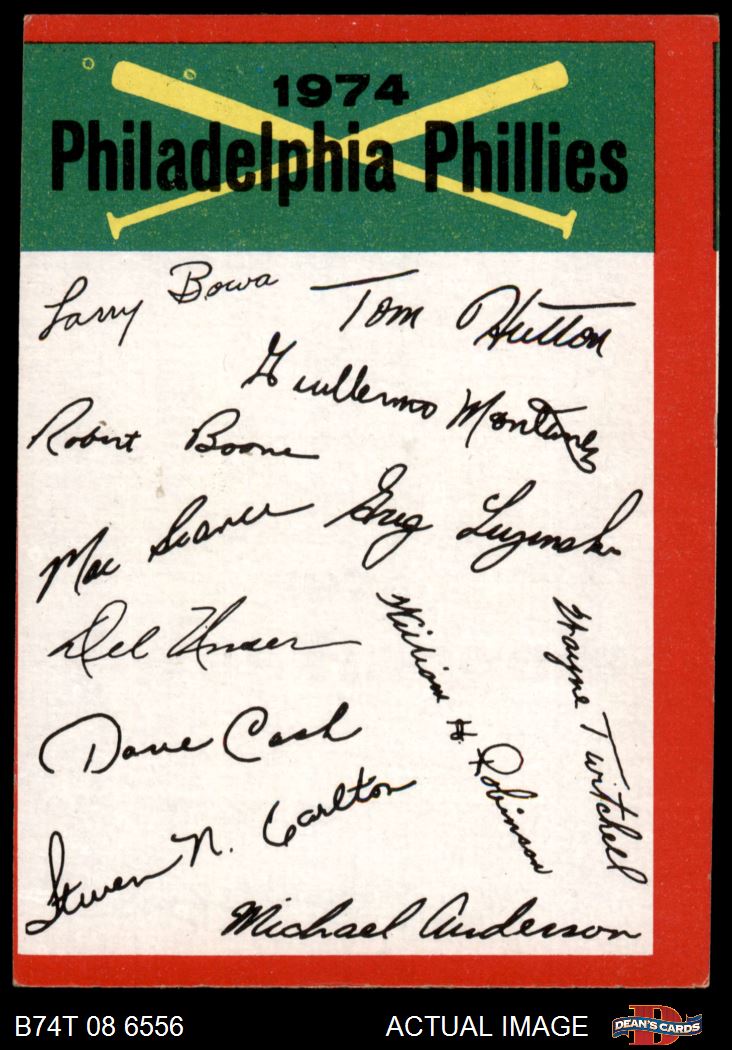 1974
Philadelphia Phillies
Larry Bowa
Tom Hutton
Guillermo Montanez
Robert Boone
Mac Scarce
Greg Luzinski
Del Unser
William H. Robinson
Wayne Twitchell
Dave Cash
Steven N. Carlton
Michael Anderson
B74T 08 6556
ACTUAL IMAGE
D
DEAN'S CARDS